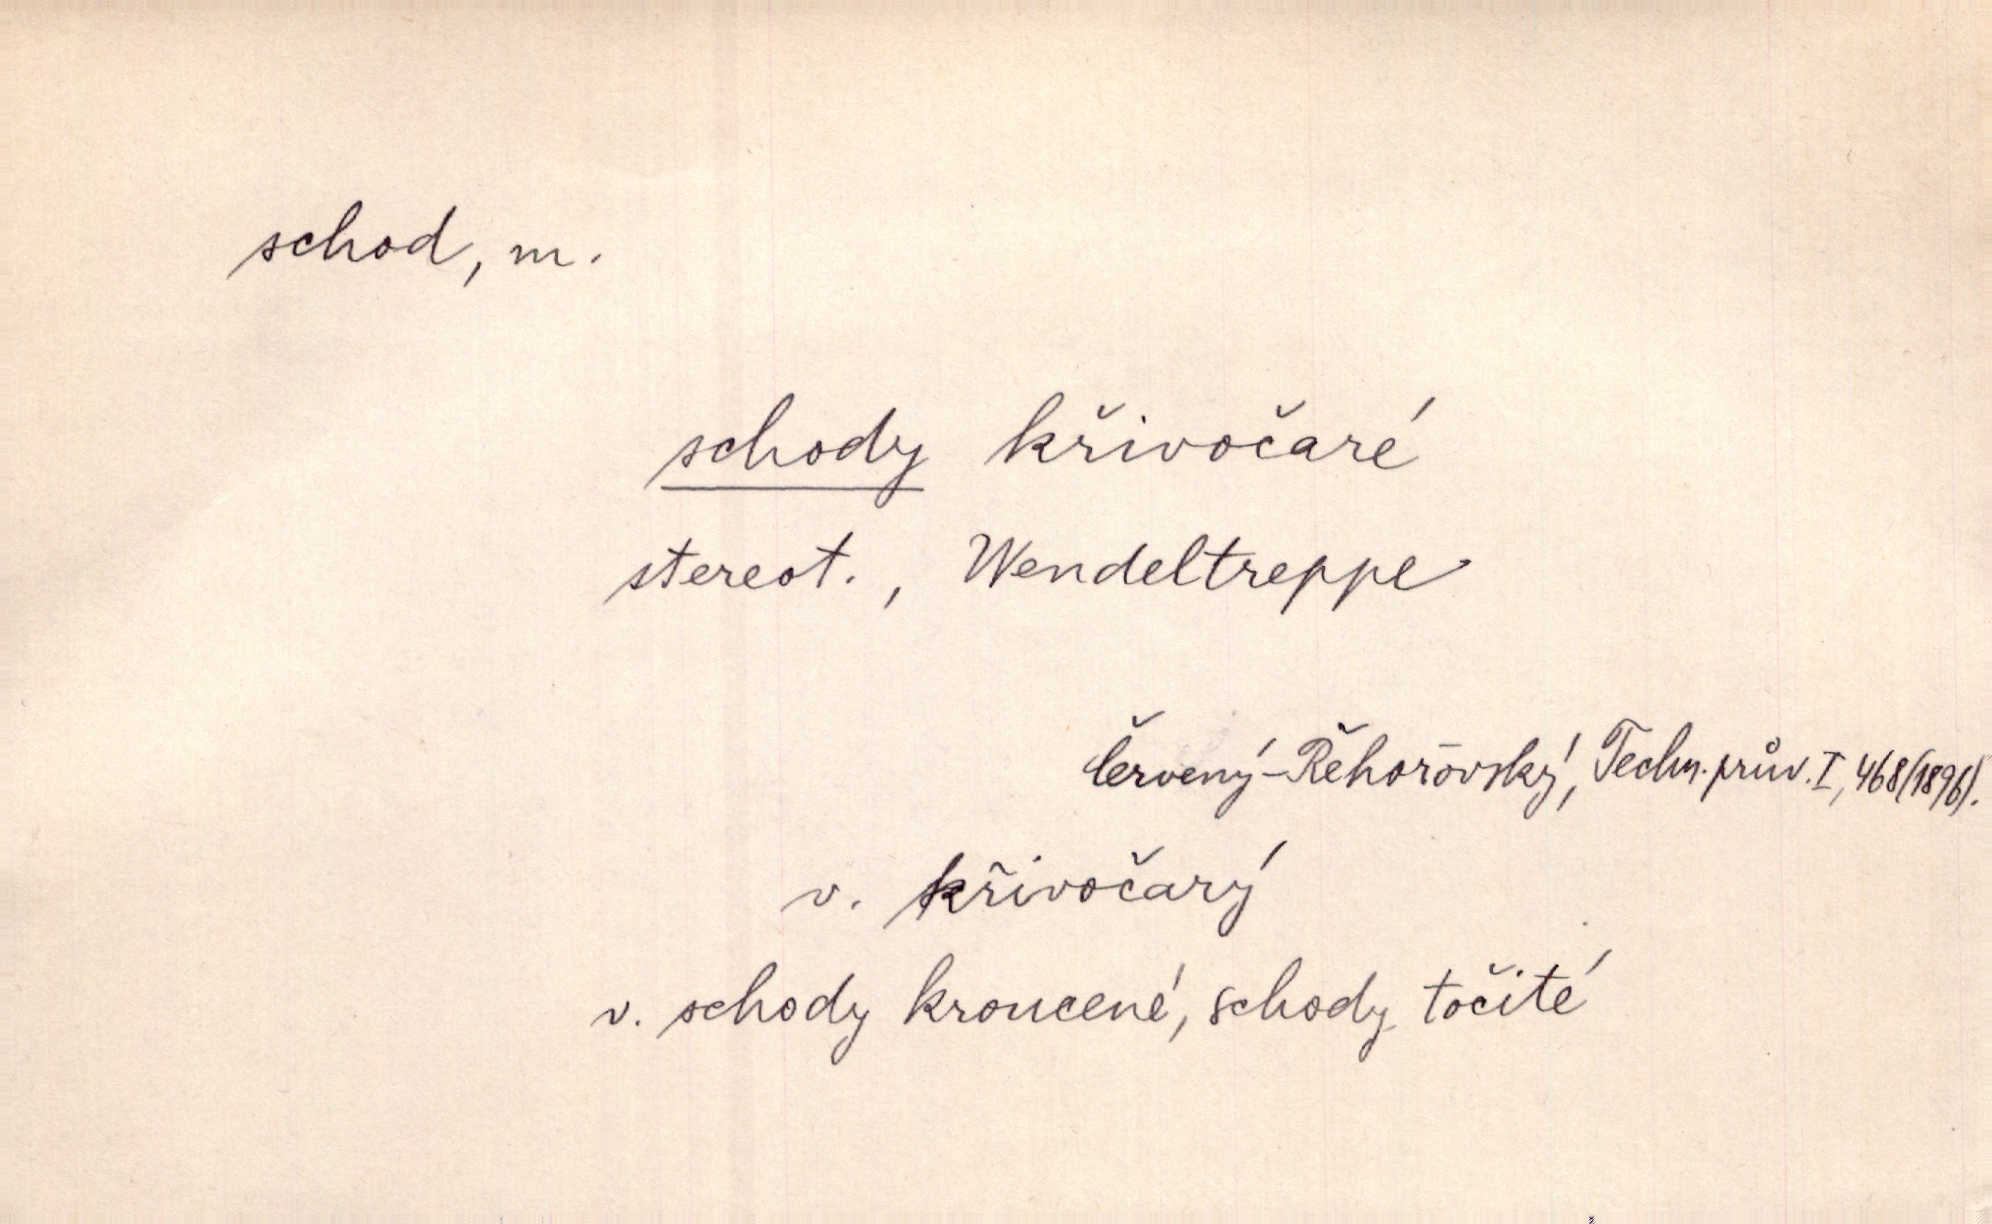 schod, m.
schody křivočaré
stereot., Wendeltreppe
Červený-Řehořovský, Techn. prův. I, 468 (1896).
v. křivočarý
v. schody kroucené, schody točité